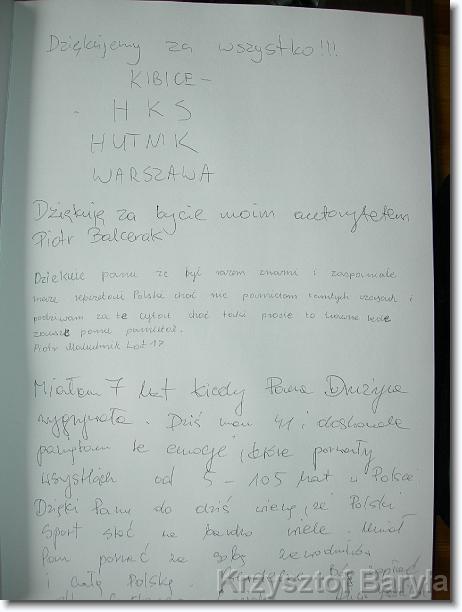 Dziękujemy za wszystko!!!
KIBICE –
- HKS
HUTNIK
WARSZAWA
Dziękuję za bycie moim autorytetem
Piotr Balcerak
Dziekuie panu ze był razem znami i zaspaniale
reperetacii Polski choć nie pamietam tamtych czasach i
podziwiam za te cytaty choć taki prosie to zawsze bede
zawsze panu pamietał.
Piotr Lat 17
Miałam 7 lat kiedy Pana Drużyna
wygrywała. Dziś mam 41 i doskonale
pamiętam te emocje, które porwały
wszystkich od 5 – 105 lat w Polsce
Dzięki Panu do dziś wierzę, że Polski
Sport stać na bardzo wiele. Umiał
Pan porwać za sobą zawodników
i całą Polskę.
Krzysztof Baryla